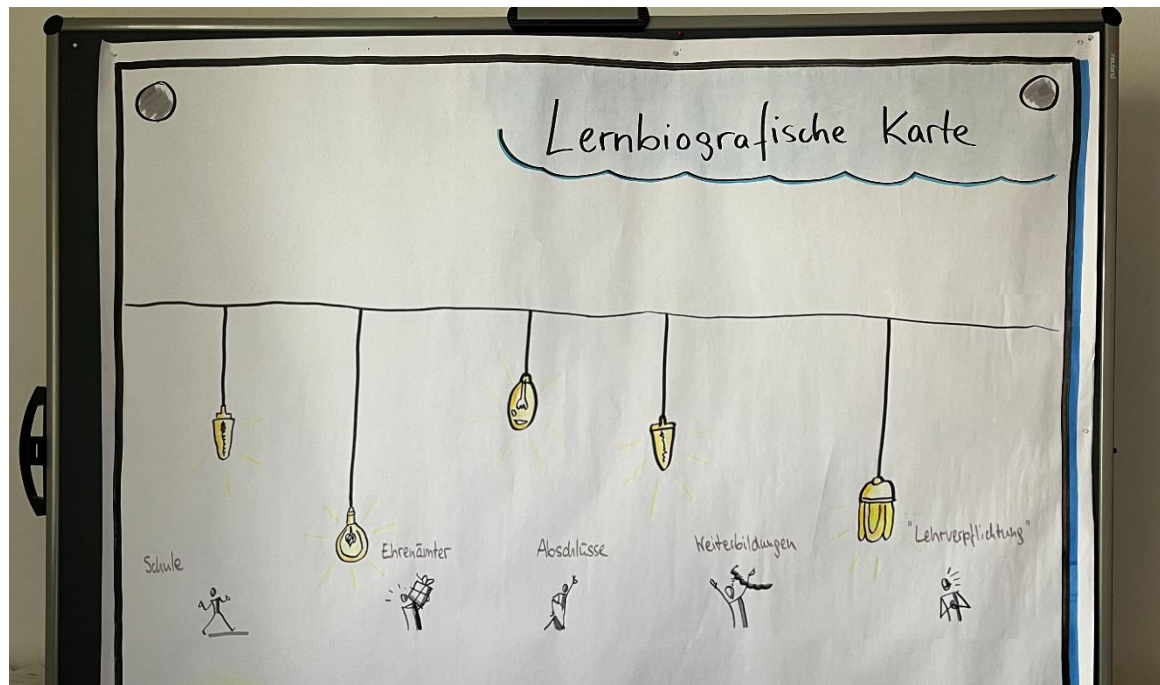 Lernbiografische Karte
Schule
Ehrenämter
Abschlüsse
Weiterbildungen
"Lehrverpflichtung"